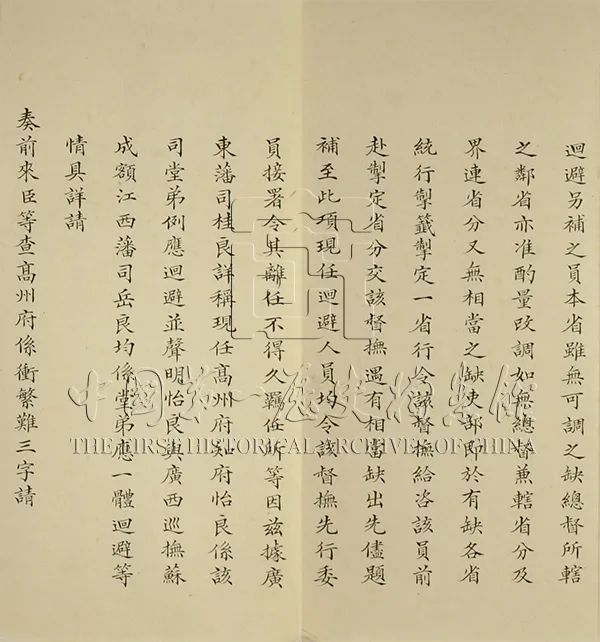 迴避另補之員本省雖無可調之缺總督所轄
之鄰省亦准酌量改調如無總督兼轄省分及
界連省分又無相當之缺吏部即於有缺各省
統行掣籤掣定一省行令該督撫給咨該員前
赴掣定省分交該督撫遇有相當缺出先儘題
補至此項現任迴避人員均令該督撫先行委
員接署令其離任不得久羈任所等因茲據廣
東藩司桂良詳稱現任高州府知府怡良係該
司堂弟例應迴避並聲明怡良與廣西巡撫蘇
成額江西藩司岳良均係堂弟應一體迴避等
情具詳請
奏前來臣等查高州府係衝繁難三字請
中國第一歷史檔案館
THE FIRST HISTORICAL ARCHIVES OF CHINA